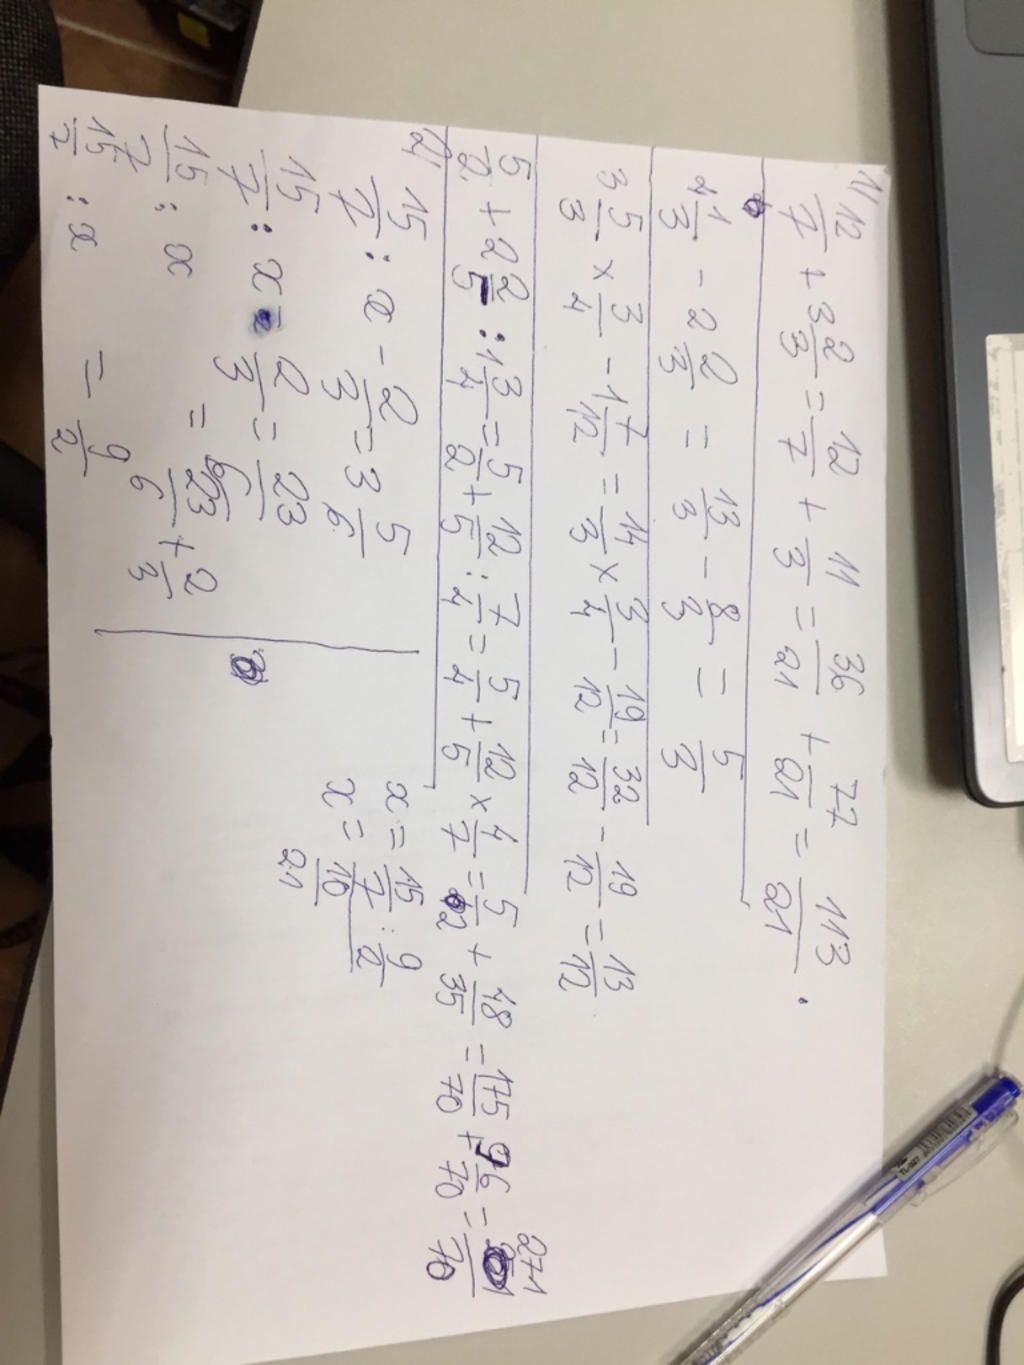 1/ 12/7 + 3 2/3 = 12/7 + 11/3 = 36/21 + 77/21 = 113/21 .
4 1/3 - 2 2/3 = 13/3 - 8/3 = 5/3
3 5/3 × 3/4 - 1 7/12 = 14/3 × 3/4 - 19/12 = 32/12 - 19/12 = 13/12
5/2 + 2 2/5 : 1 3/4 = 5/2 + 12/5 : 7/4 = 5/4 + 12/5 × 4/7 = 5/2 + 48/35 = 175/70 + 96/70 = 271/70
2/ 15/7 : x - 2/3 = 3 5/6
15/7 : x - 2/3 = 23/6
15/7 : x = 23/6 + 2/3
15/7 : x = 9/2
x = 15/7 : 9/2
x = 10/21